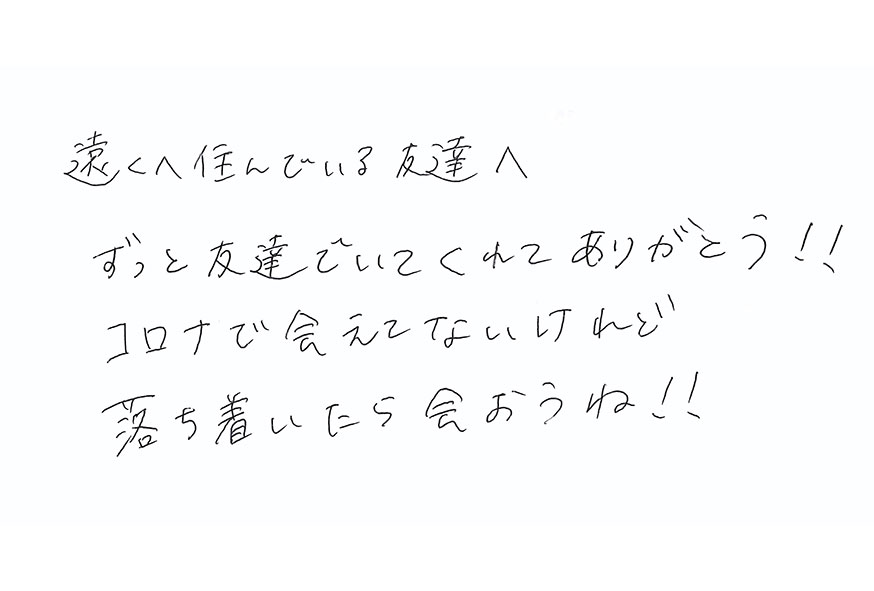 遠くへ住んでいる友達へ
ずっと友達でいてくれてありがとう!!
コロナで会えてないけれど
落ち着いたら会おうね!!